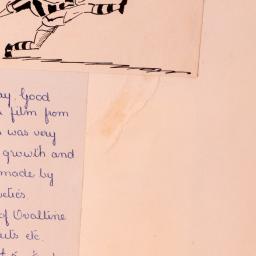 ay. Good
film from
was very
growth and
made by
of Ovaltine
etc.